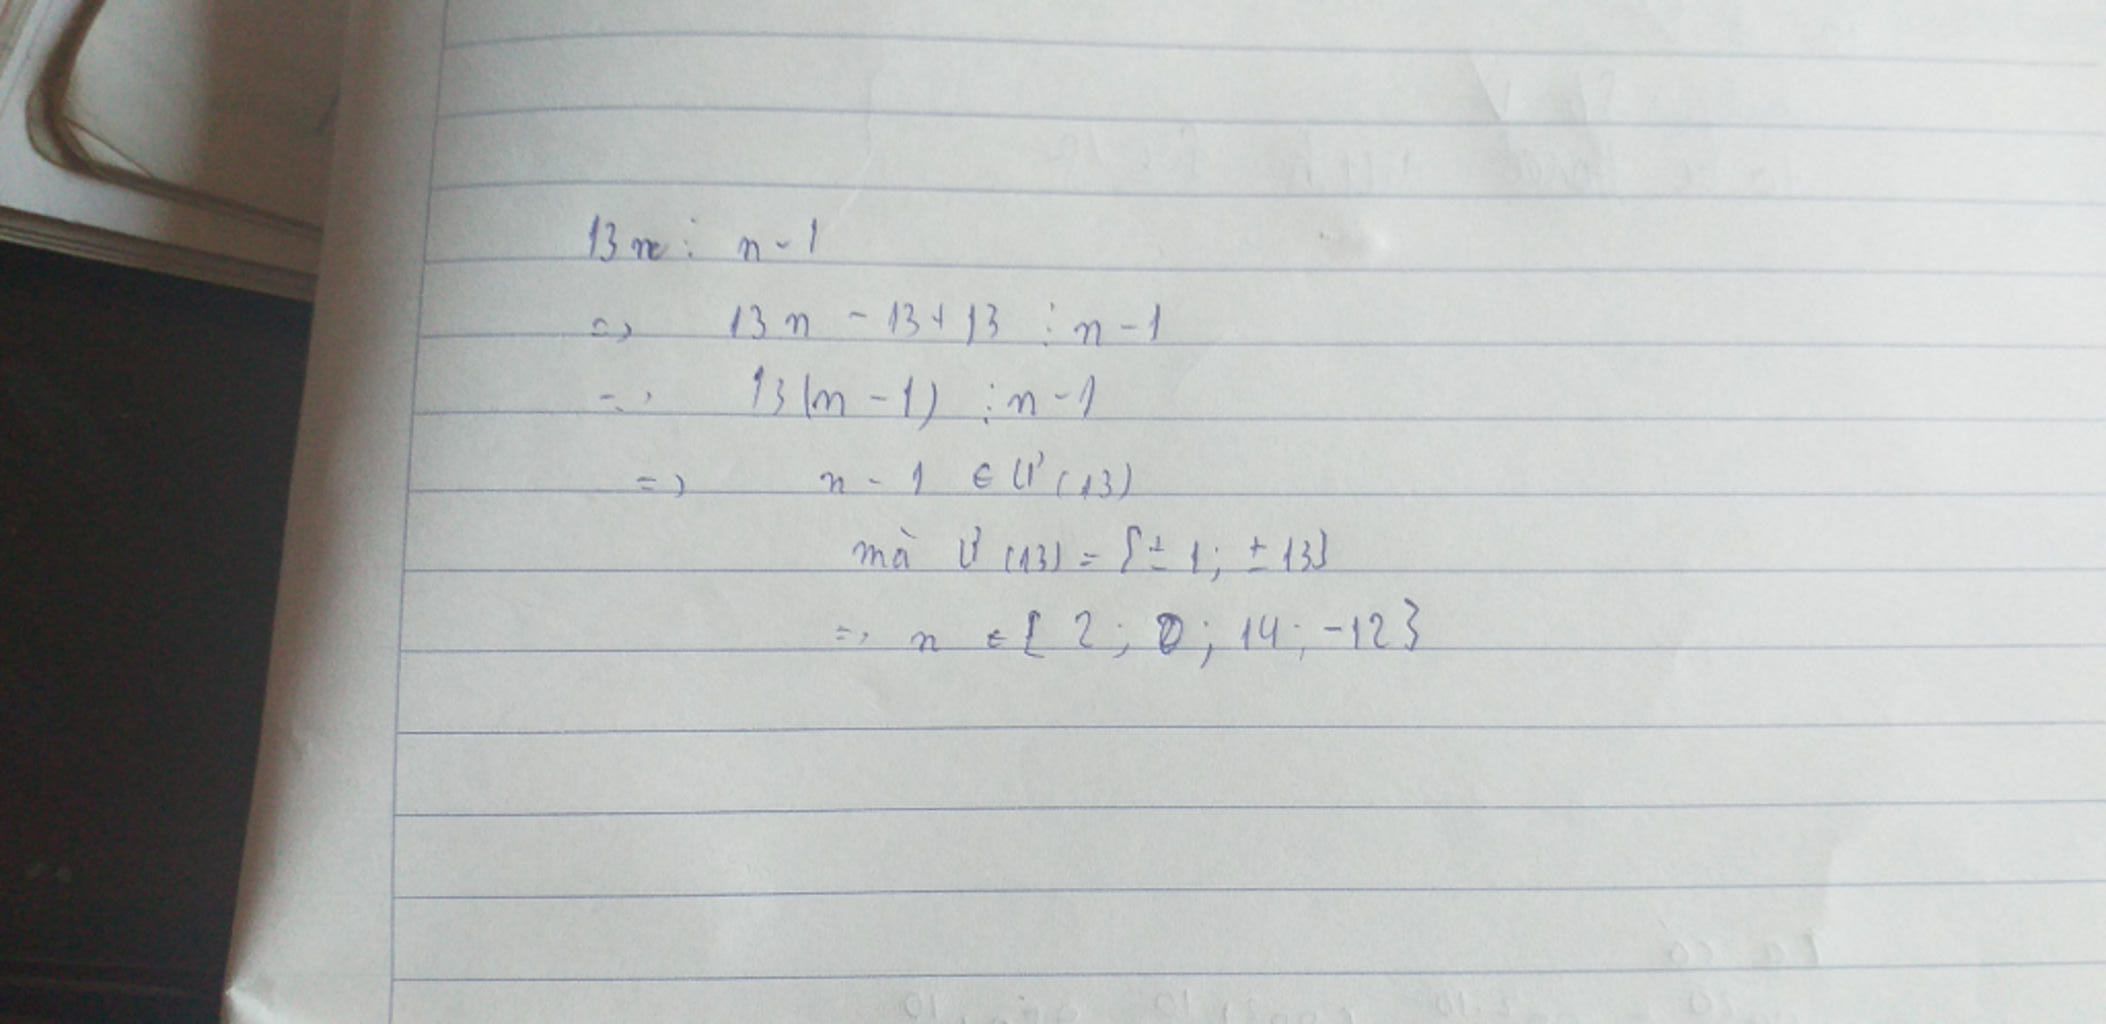 13n ⋮ n - 1
=> 13n - 13 + 13 ⋮ n - 1
=> 13(n - 1) ⋮ n - 1
=> n - 1 ∈ Ư(13)
mà Ư(13) = {± 1; ± 13}
=> n ∈ { 2; 0; 14; -12}